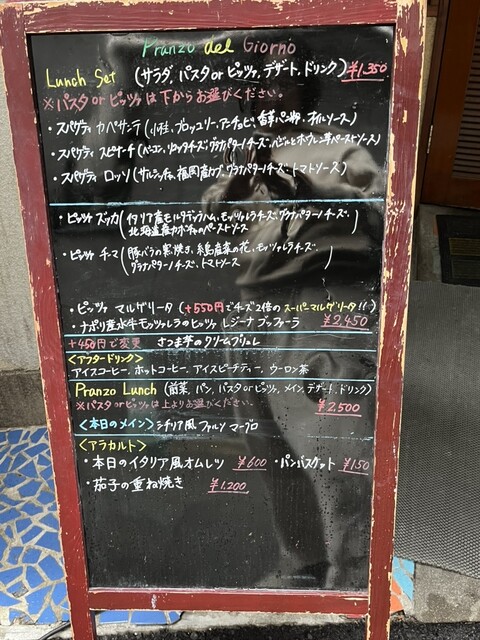 Pranzo del Giorno
Lunch Set (サラダ, パスタ or ピッツァ, デザート, ドリンク) ¥1,350
※パスタ or ピッツァ は下からお選びください。
・スパゲティ カペサンテ (小柱, ブロッコリー, アンチョビ, 香草パン粉, オイルソース)
・スパゲティ スピナーチ (ベーコン, リコッタチーズ, グラナパダーノチーズ, バジルとホウレン草ペーストソース)
・スパゲティ ロッソ (サルシッチャ, 福岡産カブ, グラナパダーノチーズ, トマトソース)
・ピッツァ ズッカ (イタリア産モルタデッラハム, モッツァレラチーズ, グラナパダーノチーズ,
北海道産カボチャのペーストソース)
・ピッツァ チーマ (豚バラの窯焼き, 糸島産菜の花, モッツァレラチーズ,
グラナパダーノチーズ, トマトソース)
・ピッツァ マルゲリータ (+550円でチーズ2倍のスーパーマルゲリータ!!)
・ナポリ産水牛モッツァレラのピッツァ レジーナ ブッファーラ ¥2,450
+450円で変更 さつま芋のクリームブリュレ
<アフタードリンク>
アイスコーヒー, ホットコーヒー, アイスピーチティー, ウーロン茶
Pranzo Lunch (前菜, パン, パスタ or ピッツァ, メイン, デザート, ドリンク)
※パスタ or ピッツァは上よりお選びください。 ¥2,500
<本日のメイン> シチリア風 ファルソ マーグロ
<アラカルト>
・本日のイタリア風オムレツ ¥600 ・パンバスケット ¥150
・茄子の重ね焼き ¥1,200